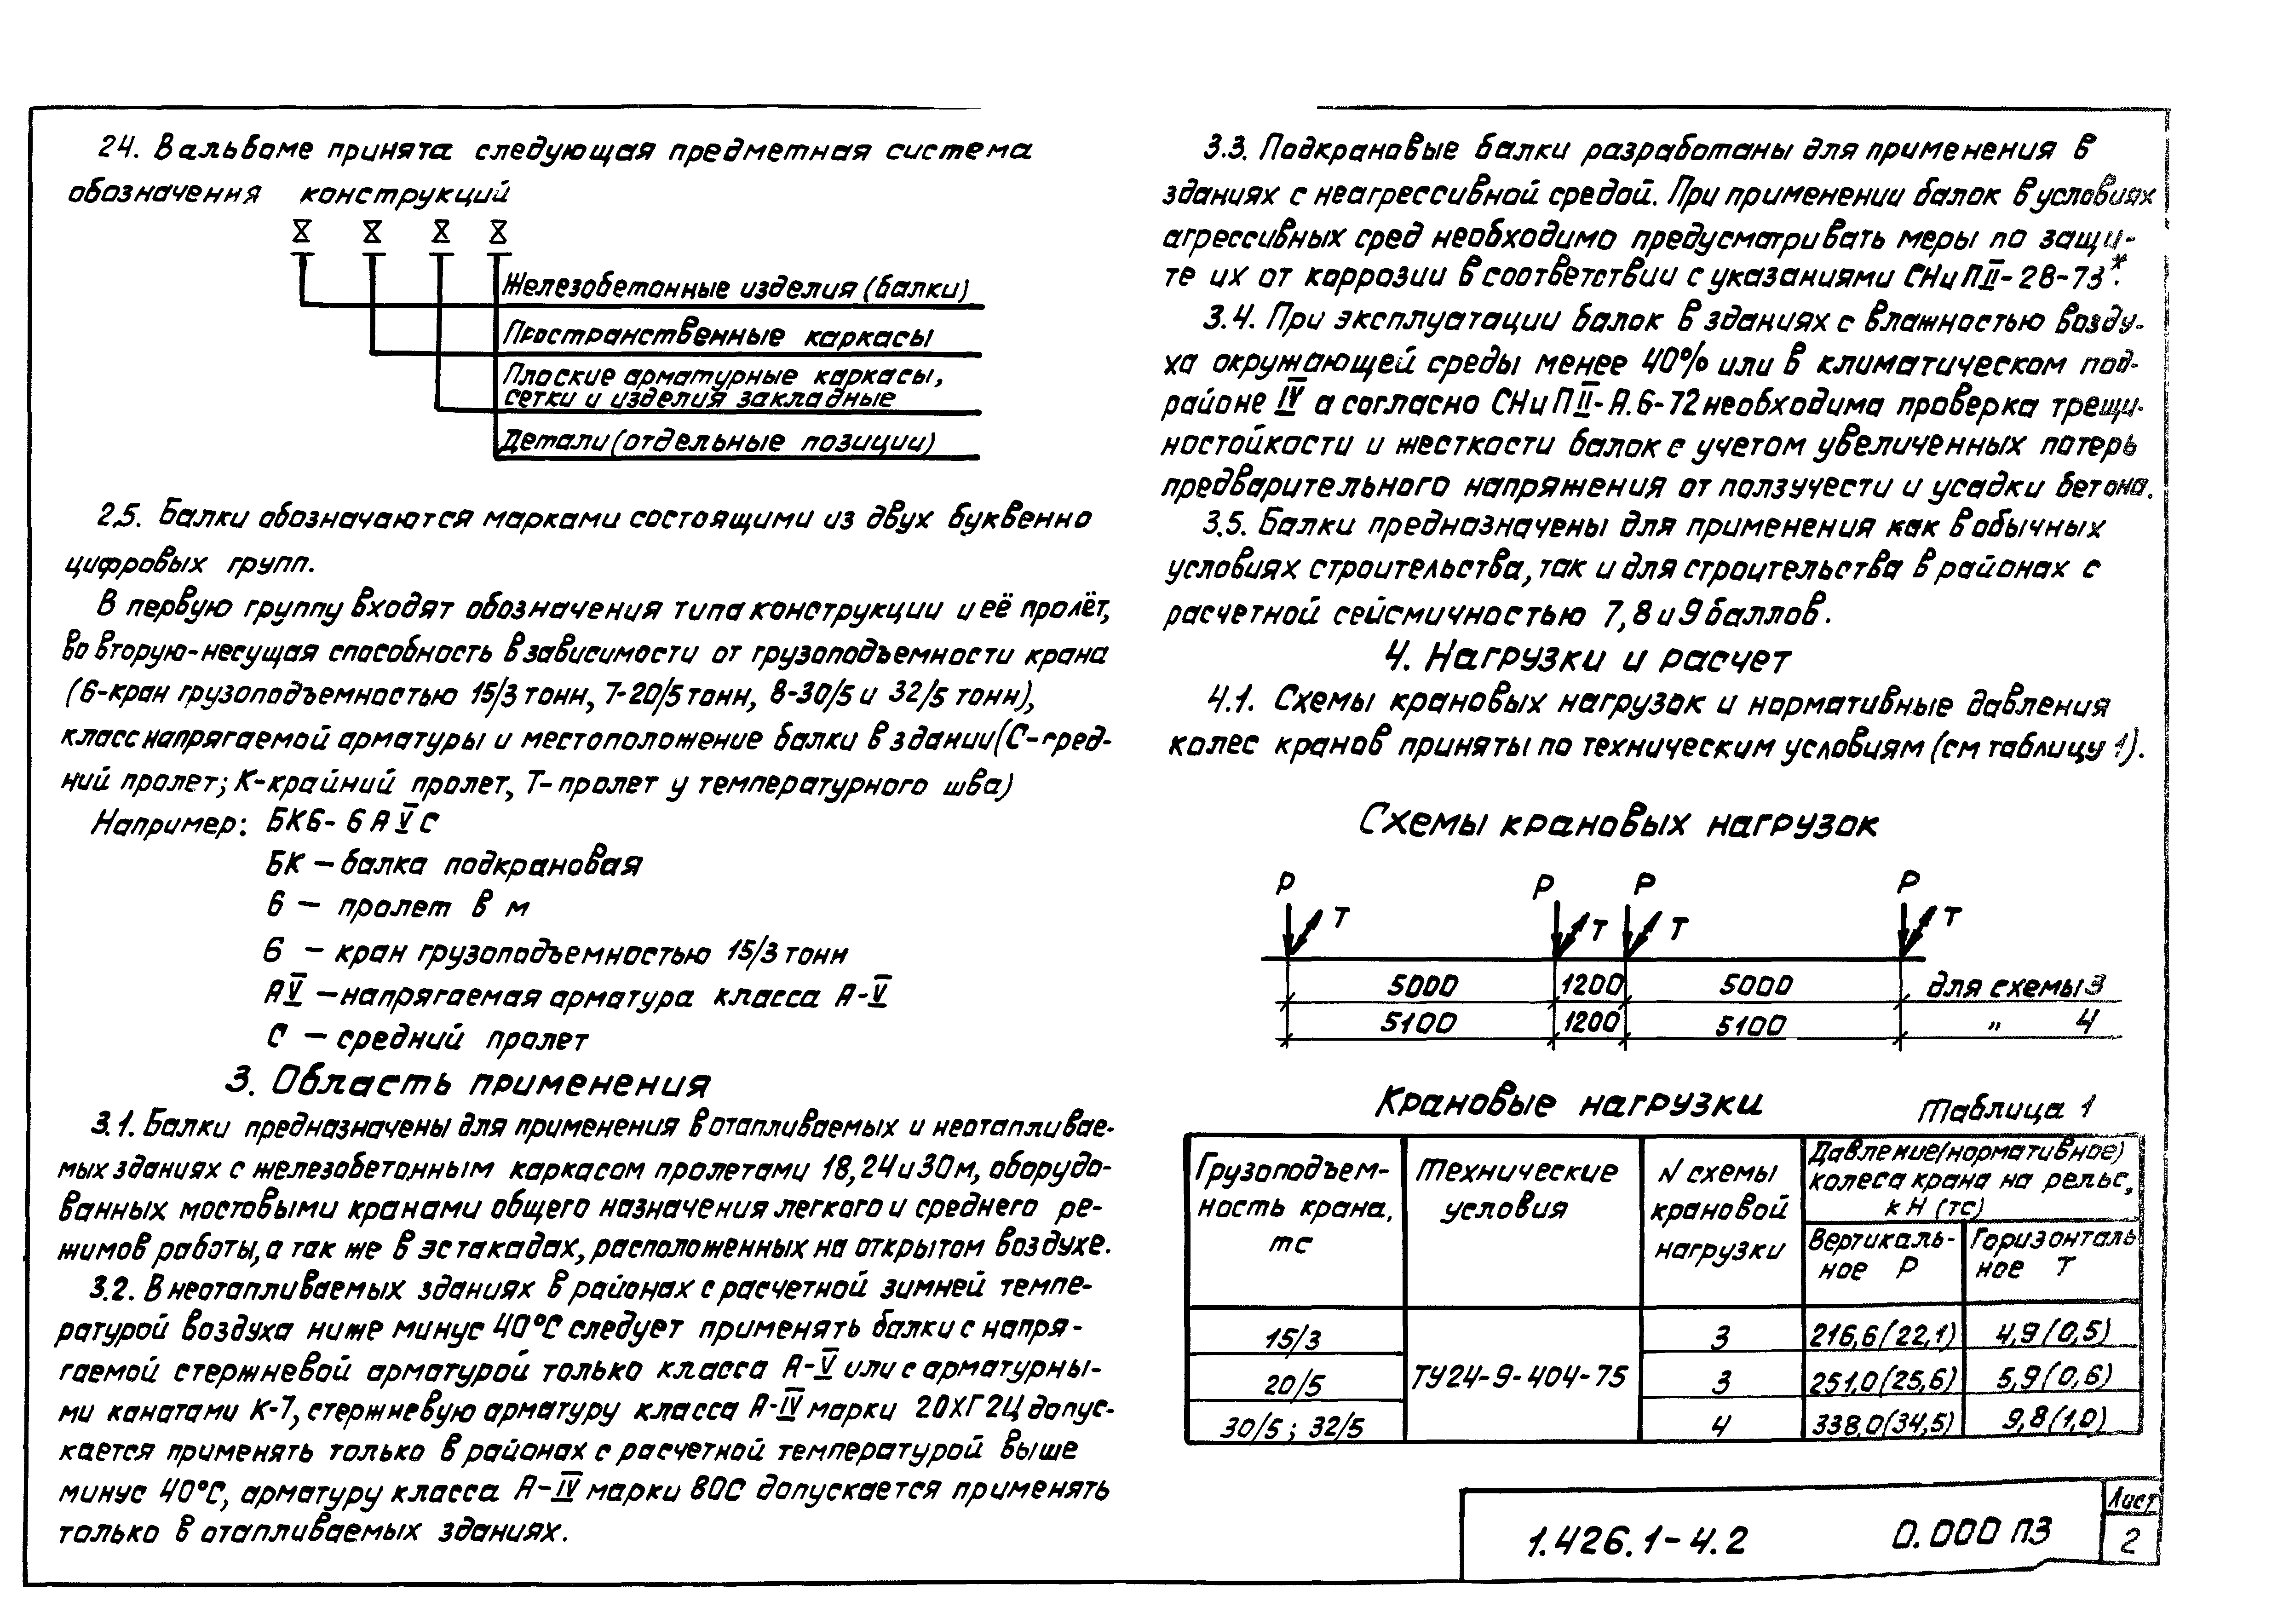 2.4. В альбоме принята следующая предметная система
обозначения конструкций
X X X X
Железобетонные изделия (балки)
Пространственные каркасы
Плоские арматурные каркасы,
сетки и изделия закладные
Детали (отдельные позиции)
2.5. Балки обозначаются марками состоящими из двух буквенно
цифровых групп.
В первую группу входят обозначения типа конструкции и её пролёт,
во вторую-несущая способность в зависимости от грузоподъемности крана
(6-кран грузоподъемностью 15/3 тонн, 7-20/5 тонн, 8-30/5 и 32/5 тонн),
класс напрягаемой арматуры и местоположение балки в здании (С-сред-
ний пролет; К-крайний пролет, Т-пролет у температурного шва)
Например: БК6-6АVС
БК — балка подкрановая
6 — пролет в м
6 — кран грузоподъемностью 15/3 тонн
АV — напрягаемая арматура класса А-V
С — средний пролет
3. Область применения
3.1. Балки предназначены для применения в отапливаемых и неотапливае-
мых зданиях с железобетонным каркасом пролетами 18,24 и 30м, оборудо-
ванных мостовыми кранами общего назначения легкого и среднего ре-
жимов работы, а так же в эстакадах, расположенных на открытом воздухе.
3.2. В неотапливаемых зданиях в районах с расчетной зимней темпе-
ратурой воздуха ниже минус 40°С следует применять балки с напря-
гаемой стержневой арматурой только класса А-V или с арматурны-
ми канатами К-7, стержневую арматуру класса А-IV марки 20ХГ2Ц допус-
кается применять только в районах с расчетной температурой выше
минус 40°С, арматуру класса А-IV марки 80С допускается применять
только в отапливаемых зданиях.
3.3. Подкрановые балки разработаны для применения в
зданиях с неагрессивной средой. При применении балок в условиях
агрессивных сред необходимо предусматривать меры по защи-
те их от коррозии в соответствии с указаниями СНиП II-28-73*.
3.4. При эксплуатации балок в зданиях с влажностью возду-
ха окружающей среды менее 40% или в климатическом под-
районе IV а согласно СНиП II-А.6-72 необходима проверка трещи-
ностойкости и жесткости балок с учетом увеличенных потерь
предварительного напряжения от ползучести и усадки бетона.
3.5. Балки предназначены для применения как в обычных
условиях строительства, так и для строительства в районах с
расчетной сейсмичностью 7, 8 и 9 баллов.
4. Нагрузки и расчет
4.1. Схемы крановых нагрузок и нормативные давления
колес кранов приняты по техническим условиям (см таблицу 1).
Схемы крановых нагрузок
Р Р Р Р
Т Т Т Т
5000 1200 5000 для схемы 3
5100 1200 5100 " 4
Крановые нагрузки Таблица 1
Грузоподъем-
ность крана,
тс
Технические
условия
N схемы
крановой
нагрузки
Давление (нормативное)
колеса крана на рельс,
кН (тс)
Вертикаль-
ное Р
Горизонталь
ное Т
15/3 3 216,6(22,1) 4,9(0,5)
20/5 ТУ24-9-404-75 3 251,0(25,6) 5,9(0,6)
30/5; 32/5 4 338,0(34,5) 9,8(1,0)
1.426.1-4.2 0.000 ПЗ
Лист
2